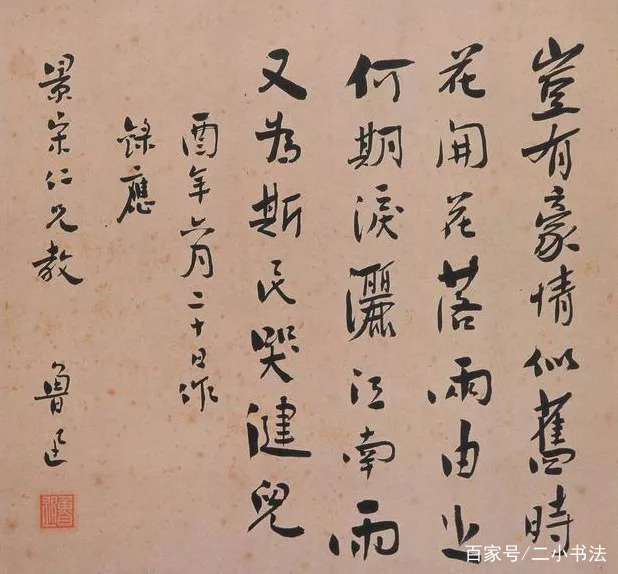 豈有豪情似舊時
花開花落兩由之
何期淚灑江南雨
又為斯民哭健兒
酉年六月二十日作
錄應
景宋仁兄教
魯迅
魯迅
百家号/二小书法